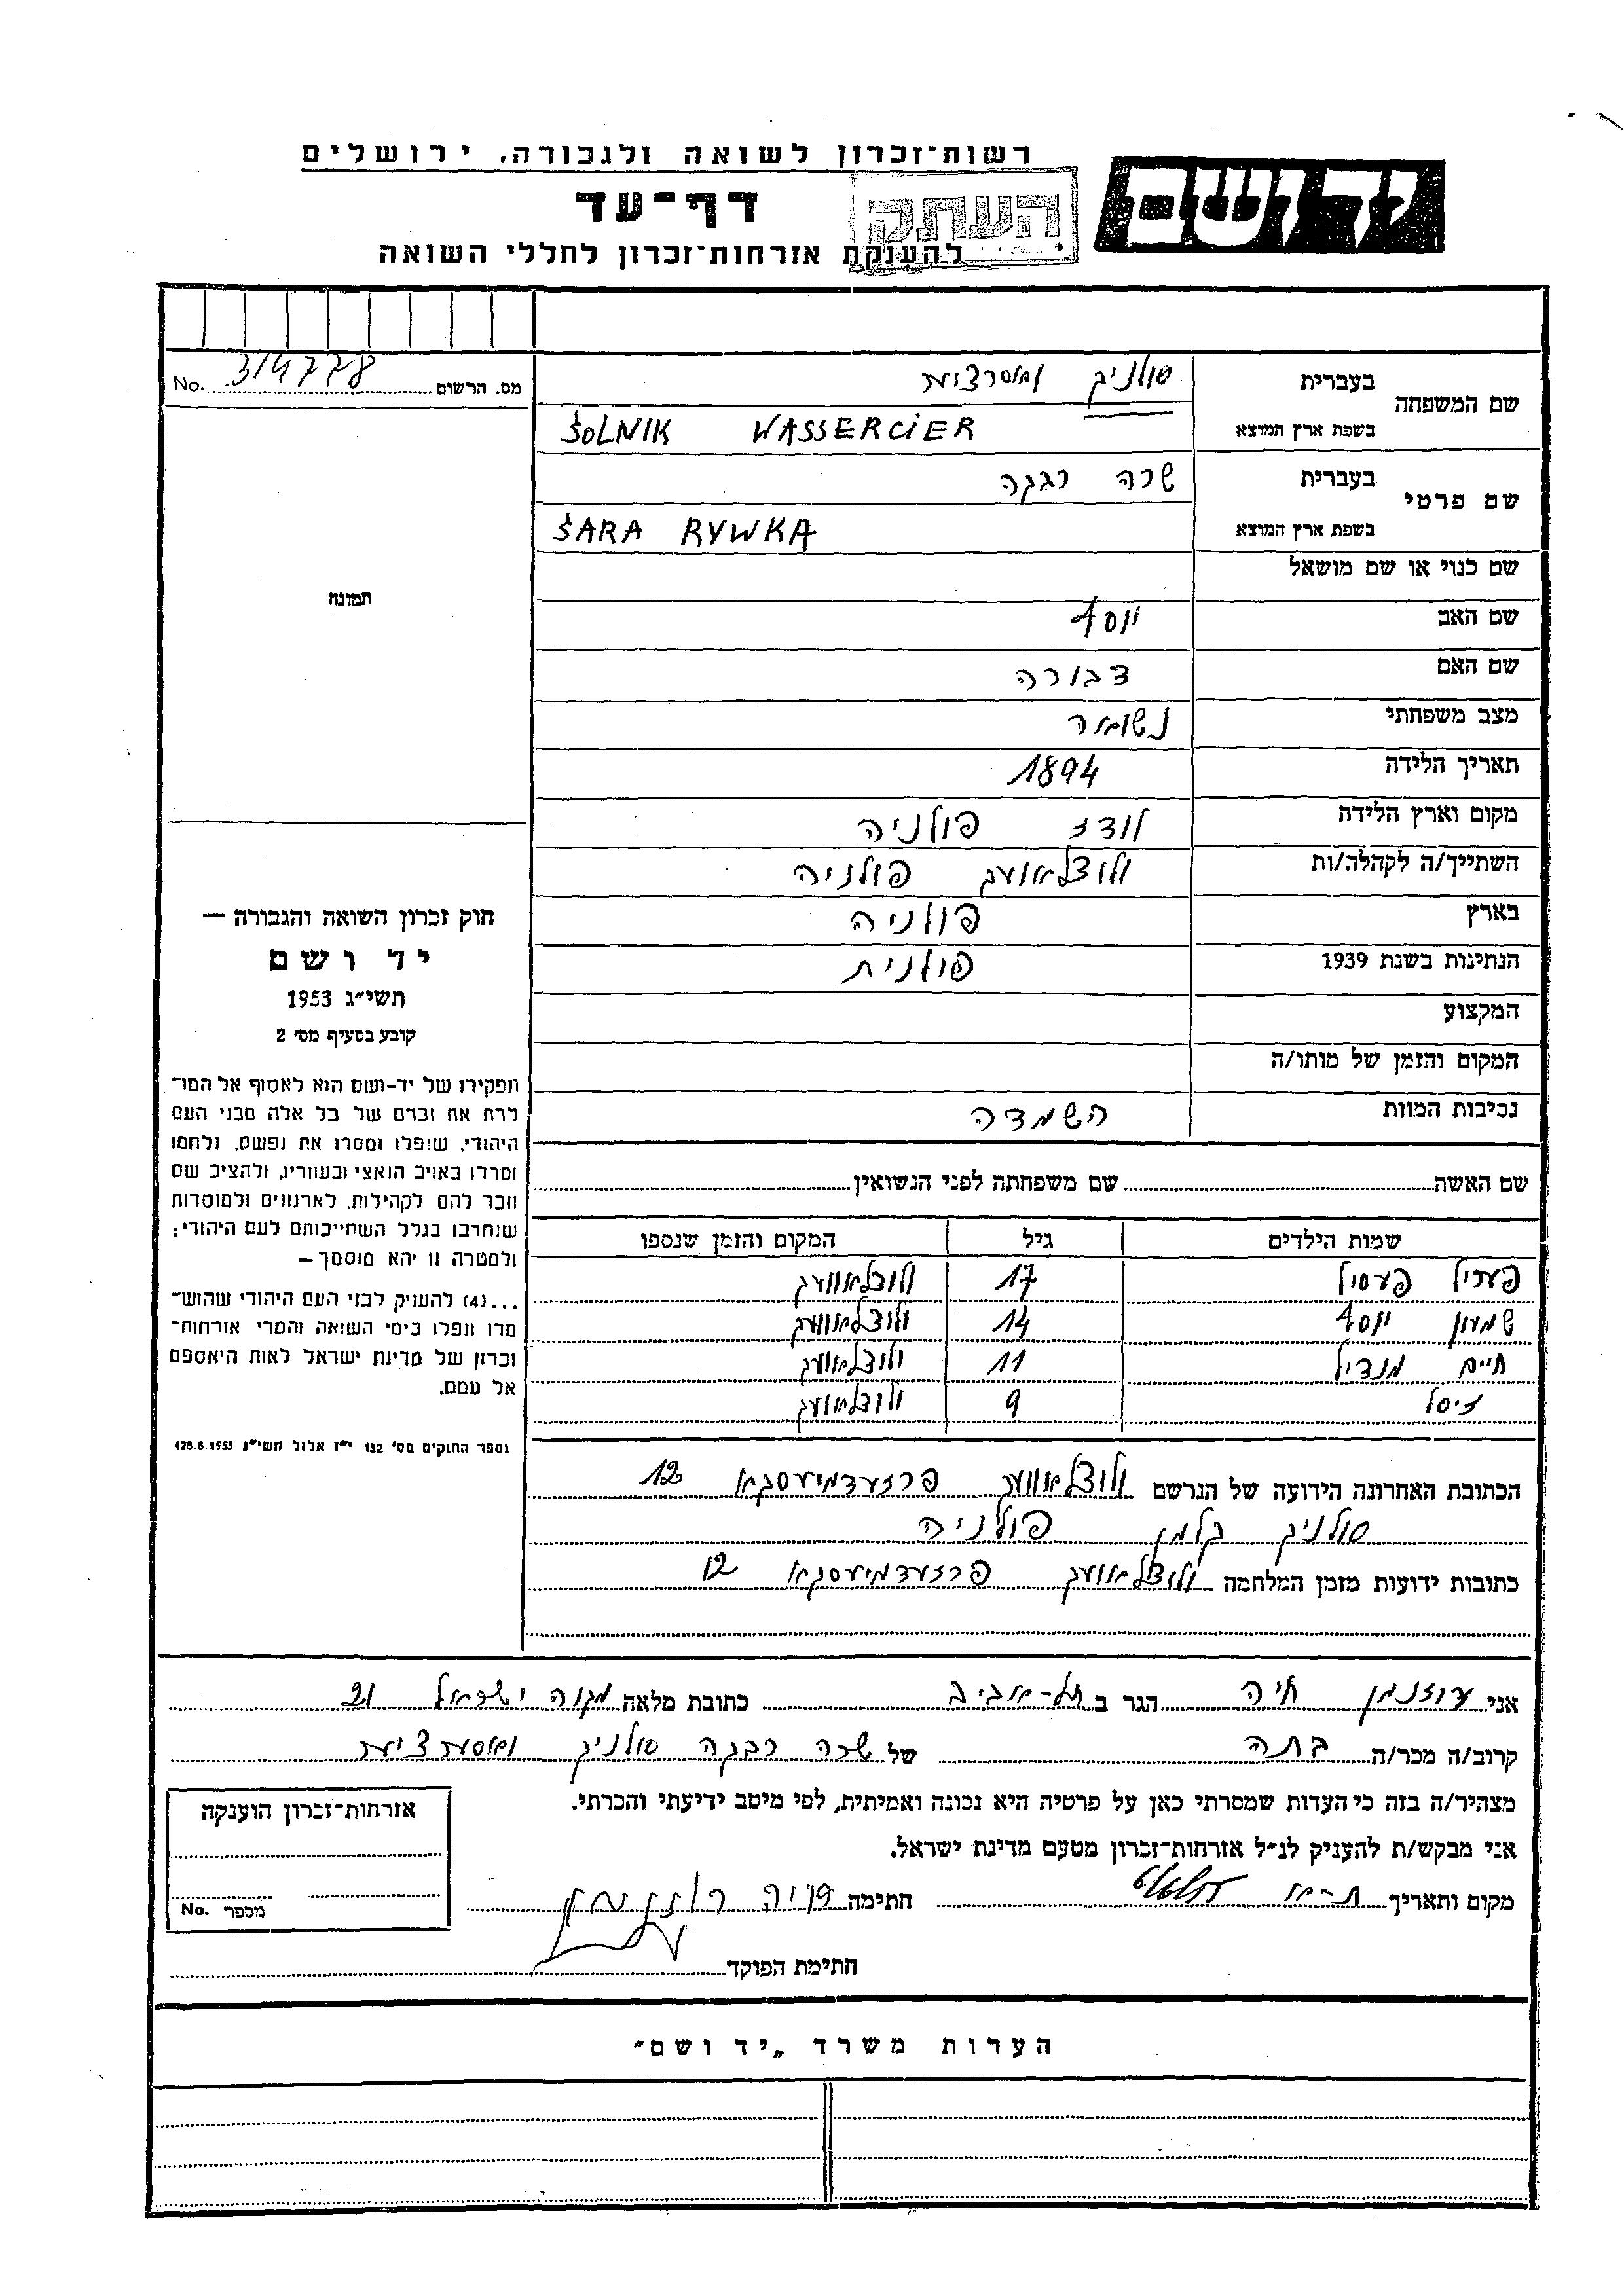 רשות־זכרון לשואה ולגבורה, ירושלים
יד ושם
דף־עד
העתק
להענקת אזרחות־זכרון לחללי השואה
מס. הרשום 314778 No.
שם המשפחה
בעברית סולניק
בשפת ארץ המוצא SOLNIK WASSERCIER
שם פרטי
בעברית שרה רבקה
בשפת ארץ המוצא SARA RYWKA
שם כנוי או שם מושאל
שם האב יוסף
שם האם דבורה
מצב משפחתי נשואה
תאריך הלידה 1894
מקום וארץ הלידה לודז פולניה
השתייך/ה לקהלה/ות ולוצלאועק פולניה
בארץ פולניה
הנתינות בשנת 1939 פולנית
המקצוע
המקום והזמן של מותו/ה
נסיבות המוות השמדה
תמונה
חוק זכרון השואה והגבורה —
יד ושם
תשי״ג 1953
קובע בסעיף מס׳ 2
תפקידו של יד-ושם הוא לאסוף אל המו־
לדת את זכרם של כל אלה מבני העם
היהודי, שנפלו ומסרו את נפשם, נלחמו
ומרדו באויב הנאצי ובעוזריו, ולהציב שם
וזכר להם לקהילות, לארגונים ולמוסדות
שנחרבו בגלל השתייכותם לעם היהודי;
ולמטרה זו יהא מוסמך —
...(4) להעניק לבני העם היהודי שהוש־
מדו ונפלו בימי השואה והמרי אזרחות־
זכרון של מדינת ישראל לאות היאספם
אל עמם.
(ספר החוקים מס׳ 132 י״ז אלול תשי״ג 28.8.1953)
שם האשה שם משפחתה לפני הנשואין
שמות הילדים גיל המקום והזמן שנספו
פעסיל 17 ולוצלאוועק
שמעון יוסף 14 ולוצלאוועק
חיים מנדיל 11 ולוצלאוועק
ציסל 9 ולוצלאוועק
הכתובת האחרונה הידועה של הנרשם ולוצלאוועק פרזעדמיעסקא 12
סולניק קלמן פולניה
כתובות ידועות מזמן המלחמה ולוצלאוועק פרזעדמיעסקא 12
אני חיה הגר ב תל-אביב כתובת מלאה מקוה ישראל 21
קרוב/ה מכר/ה בתה של שרה רבקה סולניק
מצהיר/ה בזה כי העדות שמסרתי כאן על פרטיה היא נכונה ואמיתית, לפי מיטב ידיעתי והכרתי.
אני מבקש/ת להעניק לנ״ל אזרחות־זכרון מטעם מדינת ישראל.
מקום ותאריך ת-א חתימה חיה
חתימת הפוקד
אזרחות־זכרון הוענקה
מספר No.
הערות משרד „יד ושם״